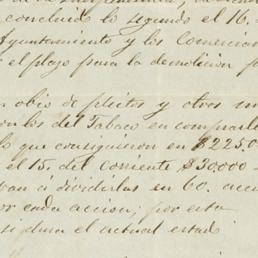 concluido lo segundo el 16.
Ayuntamiento y los Comercian
el plazo para la demolicion
obio de pleitos y otros
con los del Tabaco en comprarle
lo que consiguieron en $225.0
el 15. del corriente $30,000
van a dividirlas en 60. acci
por cada accion; por esta
si dura el actual estado